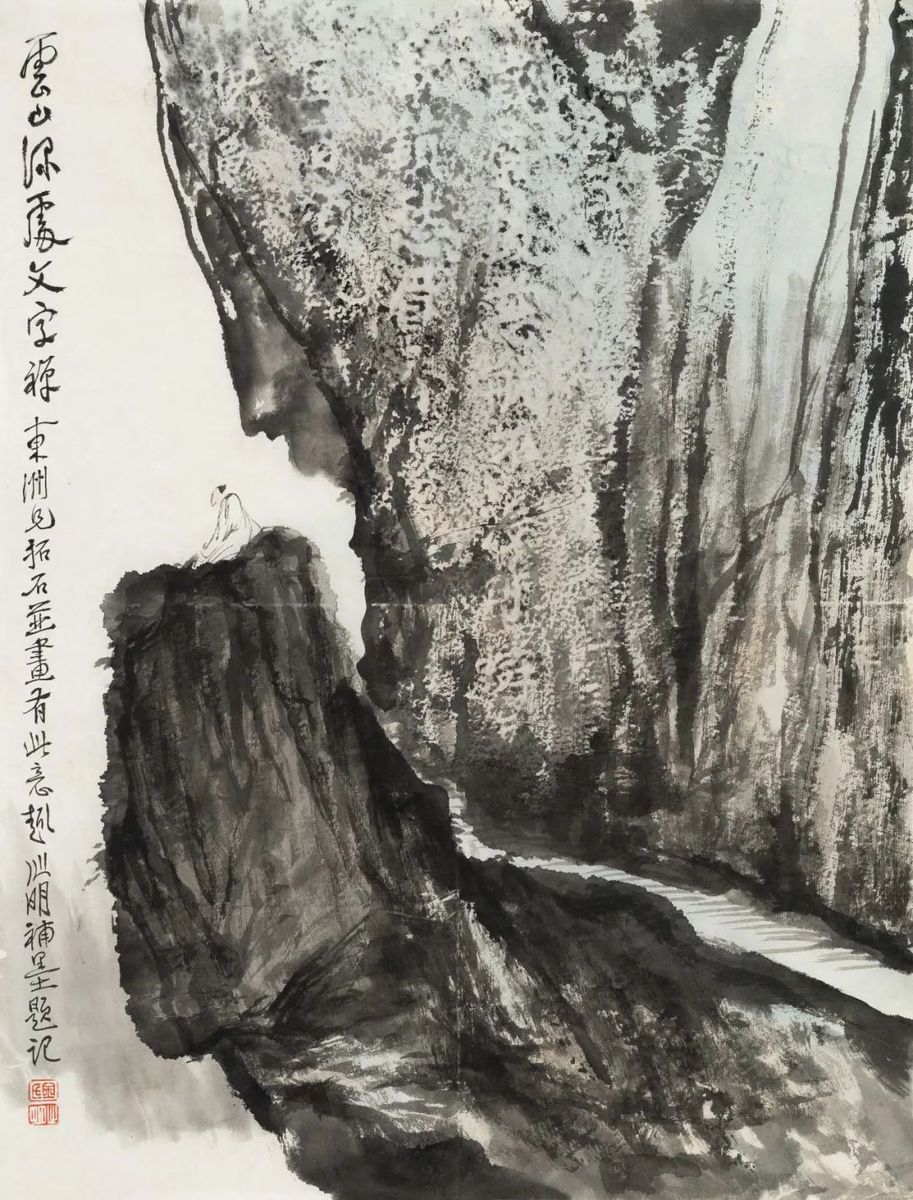 雲山深處文字禪 東洲兄拓石並畫有此意趣 明補墨題記